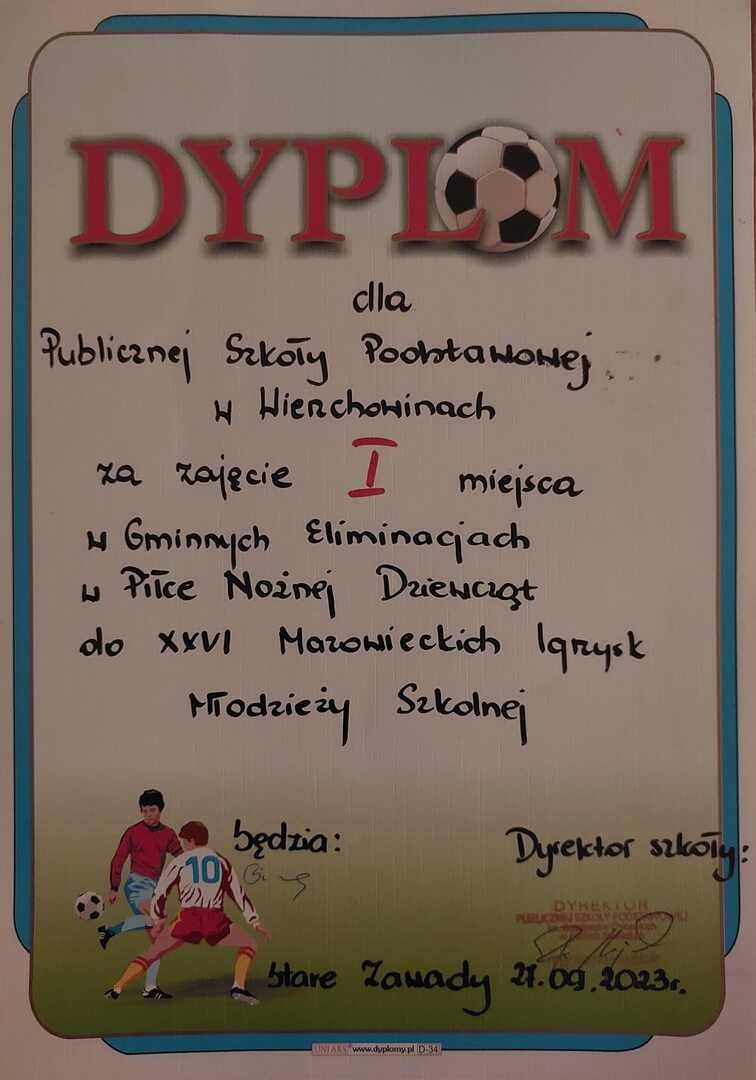 DYPLOM
dla
Publicznej Szkoły Podstawowej
w Wierzchowinach
za zajęcie I miejsca
w Gminnych Eliminacjach
w Piłce Nożnej Dziewcząt
do XXVI Mazowieckich Igrzysk
Młodzieży Szkolnej
Sędzia:
Dyrektor szkoły:
10
DYREKTOR
PUBLICZNEJ SZKOŁY PODSTAWOWEJ
Stare Zawady 27.09.2023r.
UNI ARS www.dyplomy.pl D-34